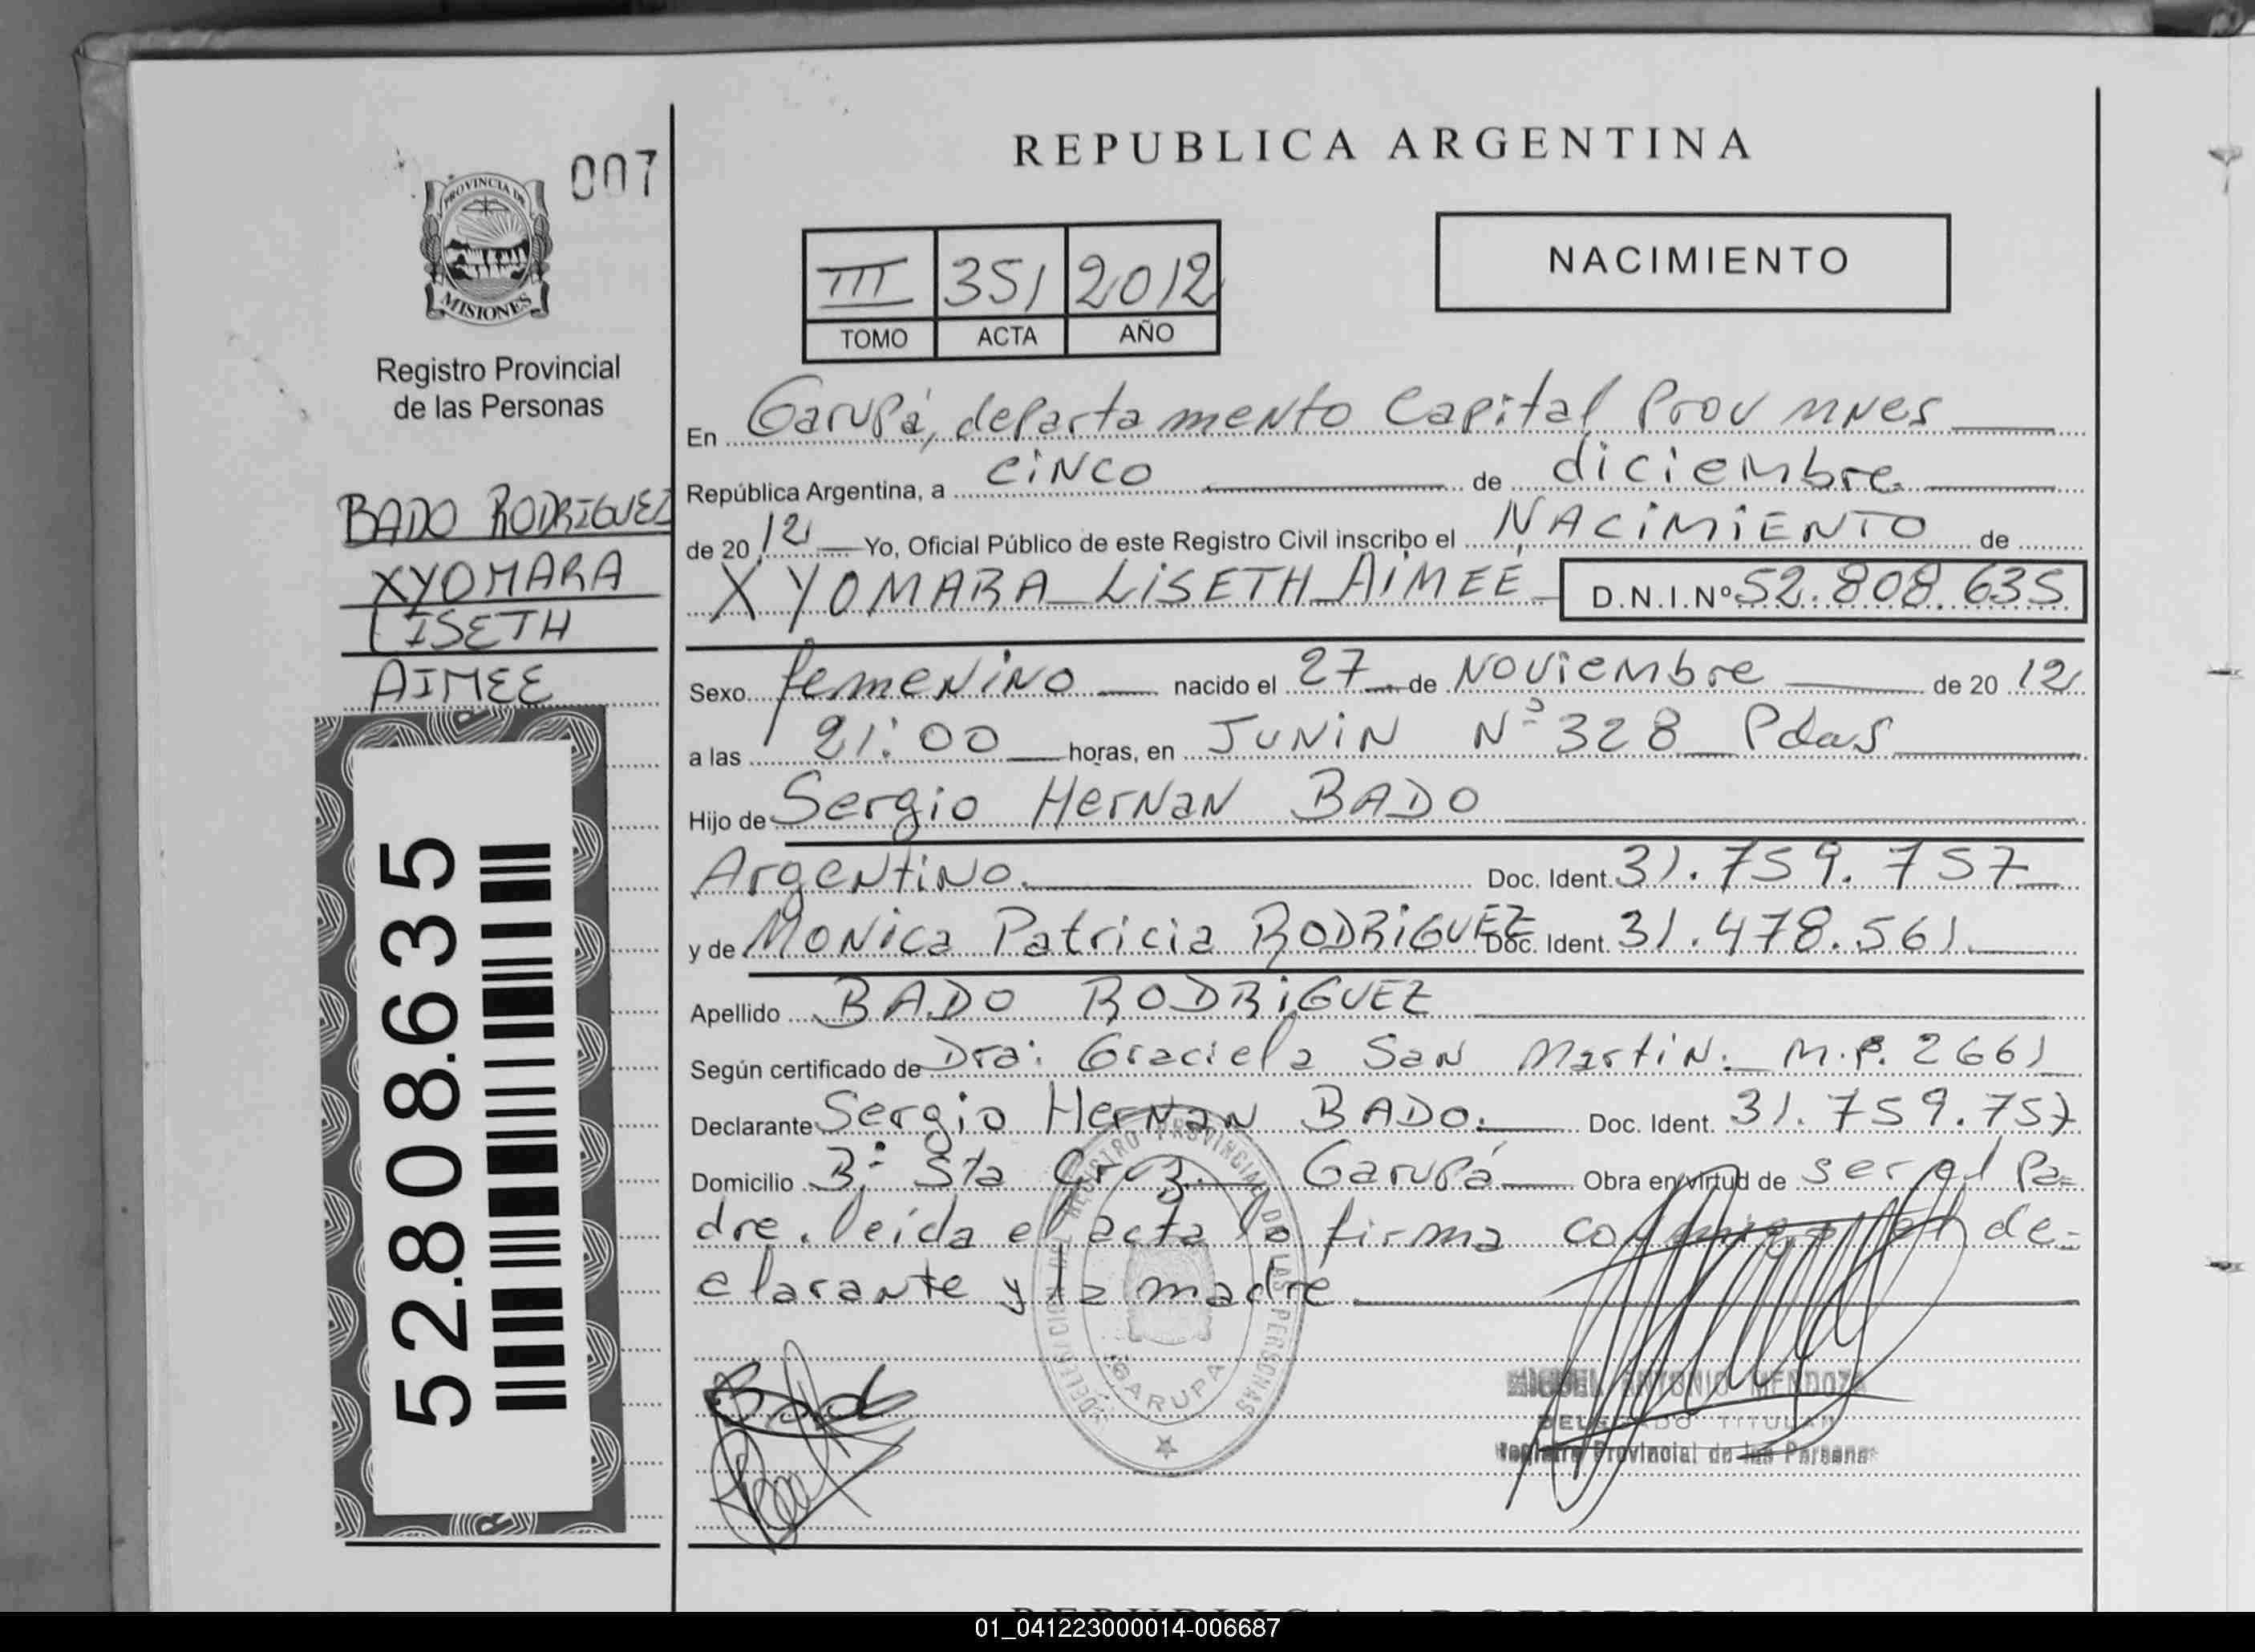 007
PROVINCIA DE
MISIONES
Registro Provincial
de las Personas
BADO RODRIGUEZ
XYOMARA
LISETH
AIMEE
52.808.635
REPUBLICA ARGENTINA
III 351 2012
TOMO ACTA AÑO
NACIMIENTO
En Garupá, departamento Capital Prov mnes
República Argentina, a cinco de diciembre
de 2012 Yo, Oficial Público de este Registro Civil inscribo el NACIMIENTO de
XYOMARA LISETH AIMEE D.N.I.Nº 52.808.635
Sexo femenino nacido el 27 de Noviembre de 2012
a las 21:00 horas, en JUNIN Nº 328 Pdas
Hijo de Sergio Hernan BADO
Argentino. Doc. Ident. 31.759.757
y de Monica Patricia RODRIGUEZ Doc. Ident. 31.478.561
Apellido BADO RODRIGUEZ
Según certificado de Dra: Graciela San Martin. M.P. 2661
Declarante Sergio Hernan BADO. Doc. Ident. 31.759.757
Domicilio Bº Sta Cruz Garupá Obra en virtud de ser el pa=
dre. leida el acta la firma conmigo el de=
clarante y la madre
Bado
REGISTRO PROVINCIAL DE LAS PERSONAS
GARUPA
MIGUEL ANTONIO MENDOZA
DELEGADO TITULAR
Registro Provincial de las Personas
01_041223000014-006687